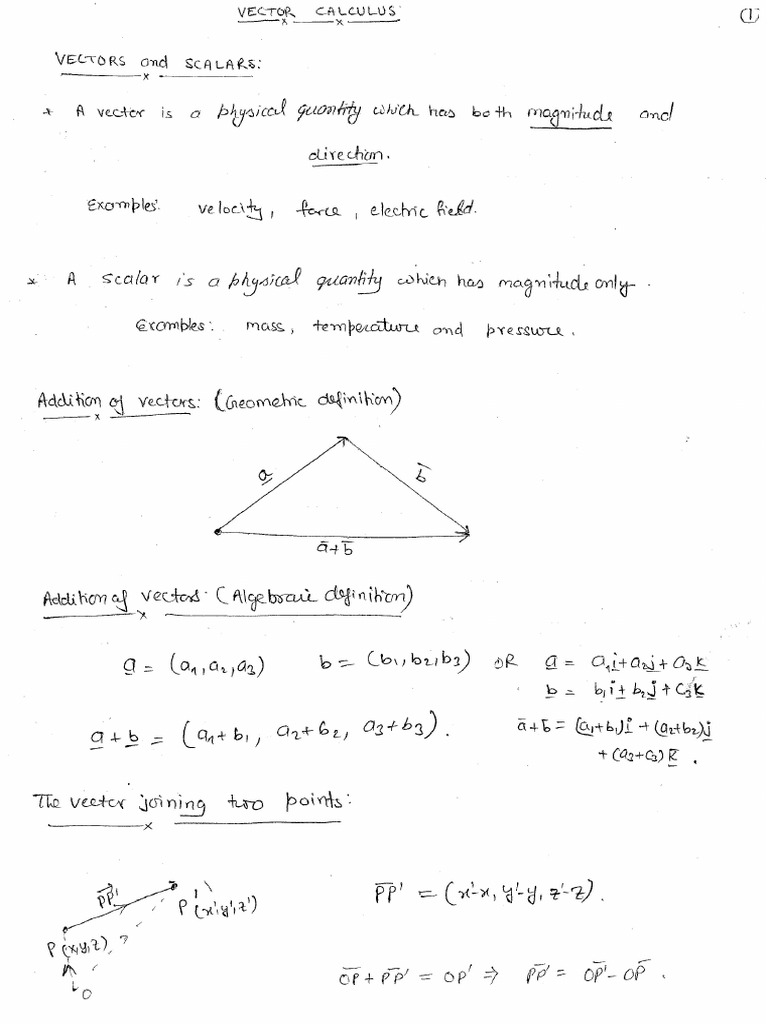 VECTOR CALCULUS:
(1)
VECTORS and SCALARS:
* A vector is a physical quantity which has both magnitude and
direction.
Examples: velocity, force, electric field.
* A scalar is a physical quantity which has magnitude only.
Examples: mass, temperature and pressure.
Addition of vectors: (Geometric definition)
a
b̄
ā+b̄
Addition of vectors: (Algebraic definition)
a = (a1, a2, a3) b = (b1, b2, b3) OR a = a1i + a2j + a3k
b = b1i + b2j + c3k
a + b = (a1+b1, a2+b2, a3+b3). ā+b̄ = (a1+b1)i + (a2+b2)j
+ (a3+c3)k.
The vector joining two points:
PP'
P'(x',y',z')
P(x,y,z)
O
P̄P̄' = (x'-x, y'-y, z'-z).
ŌP̄ + P̄P̄' = OP' ⇒ P̄P̄' = ŌP̄' - ŌP̄.